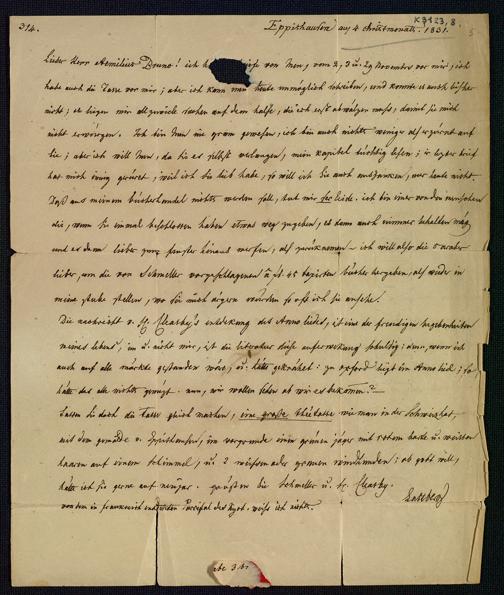 314.
Eppishausen am 4 christmonats. 1831.
K 3123, 8.
5
Lieber Herr Aemilius Braun! ich h briefe von Inen, vom 2, 3 u. 29 Novembers vor mir, ich
habe auch die Tasse vor mir; aber ich kann Inen heute unmöglich schreiben, und konnte es auch bisher
nicht; es liegen mir allzuviele sachen auf dem halse, die ich erst abwälzen muß, damit sie mich
nicht erwürgen. Ich bin Inen nie gram gewesen, ich bin auch nichts weniger als erzürnt auf
Sie; aber ich will Inen, da Sie es selbst verlangen, mein kapitel tüchtig lesen; ir lezter brief
hat mich innig gerürt, weil ich Sie lieb habe, so will ich Sie auch auszanken, nur heute nicht.
Daß aus meinem bücherhandel nichts werden soll, thut mir sehr leide. ich bin einer von den menschen
die, wenn sie einmal beschlossen haben etwas weg zugeben, es dann auch nimmer behalten mag
und es dann lieber zum fenster hinaus werfen, als zurüknemen – ich will also die
lieber, um die von Schmeller vorgeschlagenen 45 bücher hergeben, als wieder in
meine stube stellen, wo sie mich ärgern würden so oft ich sie ansehe.
Die nachricht v. H. Cleasby's entdekung des Anno liedes, ist eine der freudigen begebenheiten
meines lebens, im u. nicht mir, ist die literatur diese auferwekung schuldig: denn, wenn ich
auch auf alle märkte gestanden wäre, u. hätte gekräht: zu oxford ligt ein Anno lied; so
hätte das alles nichts genüzt. nun, wir wollen sehen ob wir es bekommen?—
Lassen Sie doch die Tasse gleich machen, eine große theetasse wie man in der Schweiz hat,
mit dem gemälde v. Eppishausen, im vorgrunde einen grünen jäger mit rothem barte u. weissen
haaren auf einem schimmel, u. 2 weissen oder grauen windhunden; ob gott will,
hätte ich sie gerne auf neujar. grüssen Sie Schmeller u. H. Cleasby.
von dem in frankreich entdekten Parcifal des Kyot. weiss ich nichts.
Lassberg